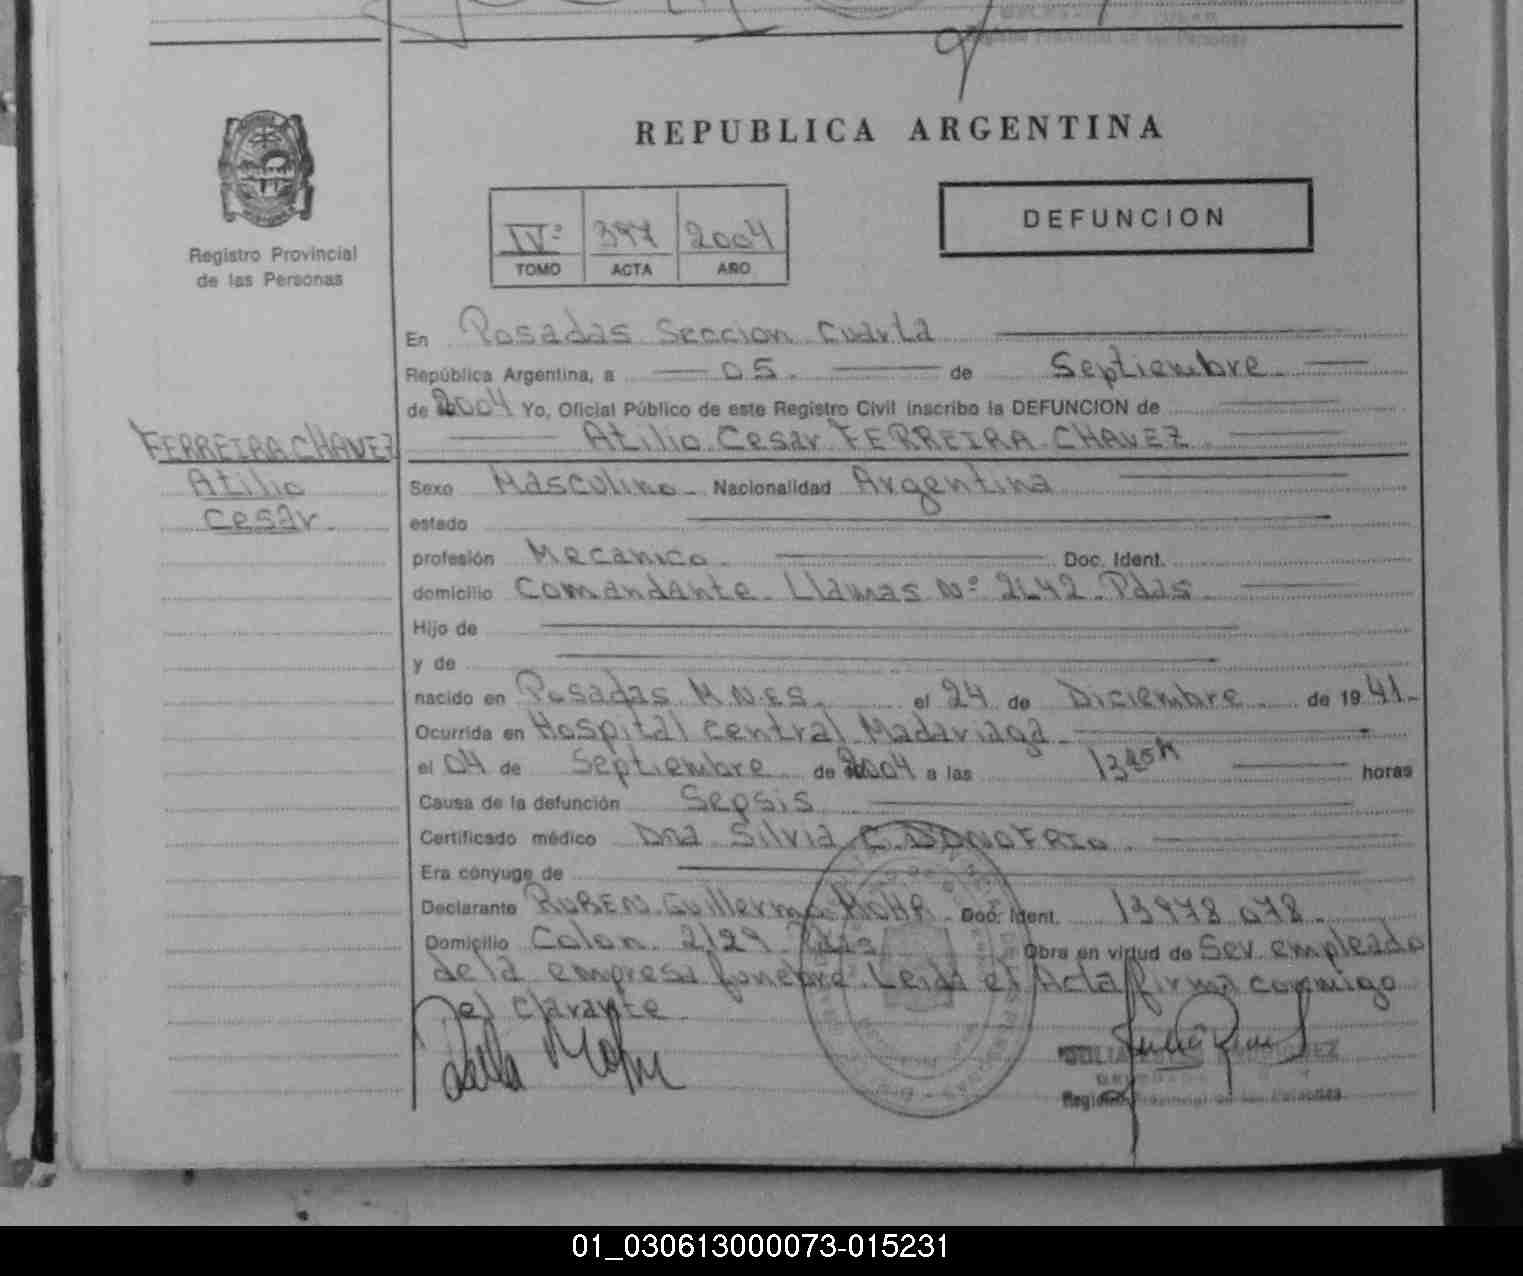 REPUBLICA ARGENTINA
DEFUNCION
IVº 397 2004
TOMO ACTA AÑO
Registro Provincial
de las Personas
En Posadas Seccion Cuarta
República Argentina, a 05 de Septiembre
de 2004 Yo, Oficial Público de este Registro Civil inscribo la DEFUNCION de
Atilio Cesar FERREIRA CHAVEZ
FERREIRA CHAVEZ
Atilio
Cesar
Sexo Masculino Nacionalidad Argentina
estado
profesión Mecanico Doc. Ident.
domicilio Comandante Llamas Nº 2142 Pdas
Hijo de
y de
nacido en Posadas M.N.E.S. el 24 de Diciembre de 1941
Ocurrida en Hospital central Madariaga
el 04 de Septiembre de 2004 a las horas
Causa de la defunción Sepsis
Certificado médico Dra Silvia C. DONOFRIO
Era cónyuge de
Declarante RUBEN Guillermo Doc. Ident. 13978 078
Domicilio Colon 2129 Pdas Obra en virtud de Ser empleado
de la empresa funebre Leida el Acta firma conmigo
el clarante
Registro Provincial de las Personas
01_030613000073-015231